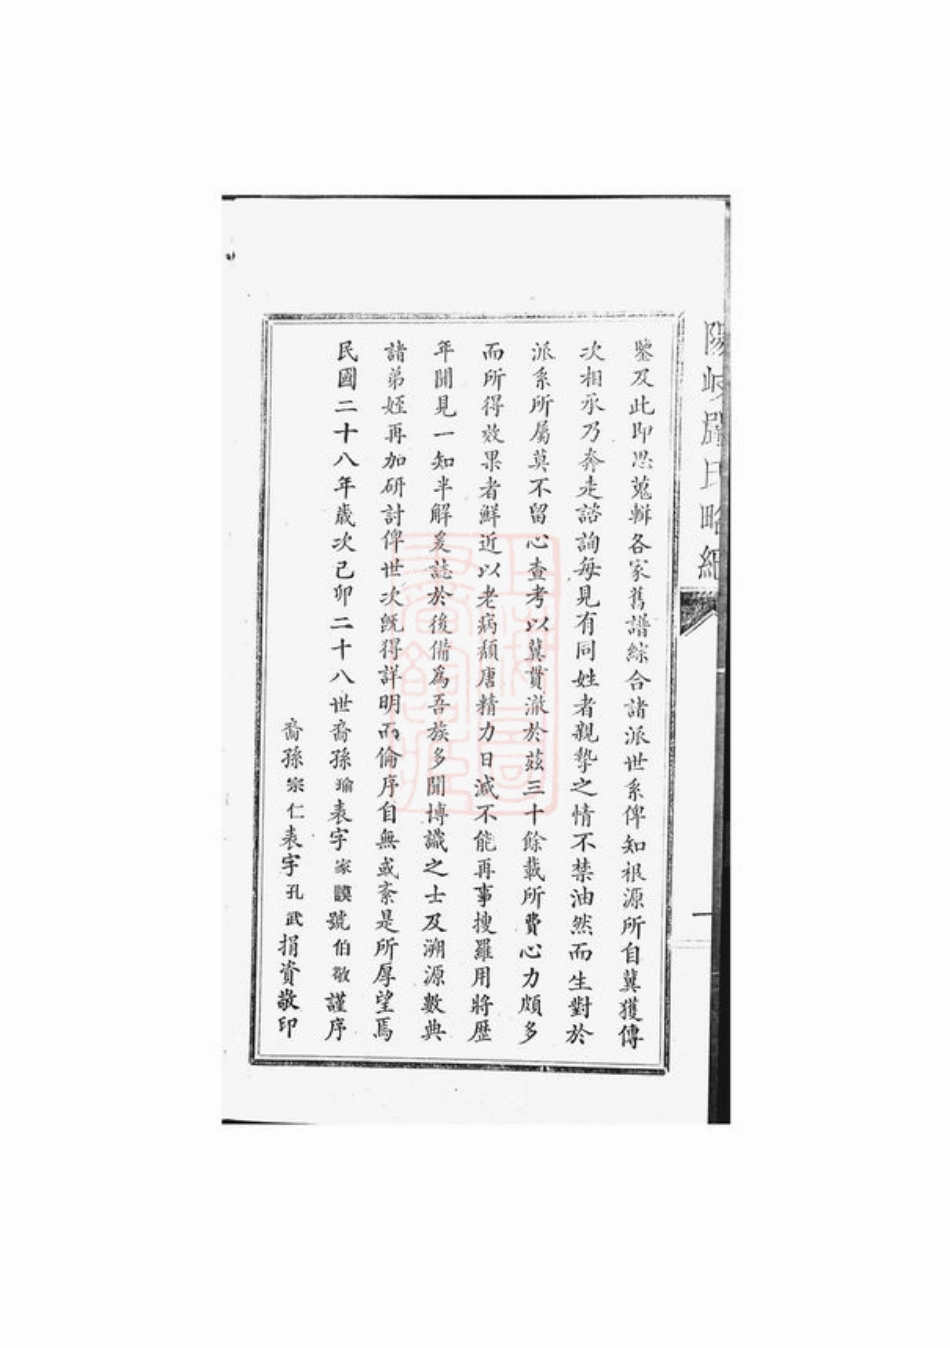 陽岐嚴氏略紀
一
鑒及此即思蒐輯各家舊譜綜合諸派世系俾知根源所自冀獲傳
次相承乃奔走諮詢每見有同姓者親摯之情不禁油然而生對於
派系所屬莫不留心查考以冀貫澈於茲三十餘載所費心力頗多
而所得效果者鮮近以老病頹唐精力日減不能再事搜羅用將歷
年聞見一知半解爰誌於後備為吾族多聞博識之士及溯源數典
諸弟姪再加研討俾世次既得詳明而倫序自無或紊是所厚望焉
民國二十八年歲次己卯二十八世裔孫瑜表字家謨號伯敬謹序
裔孫宗仁表字孔武捐資敬印